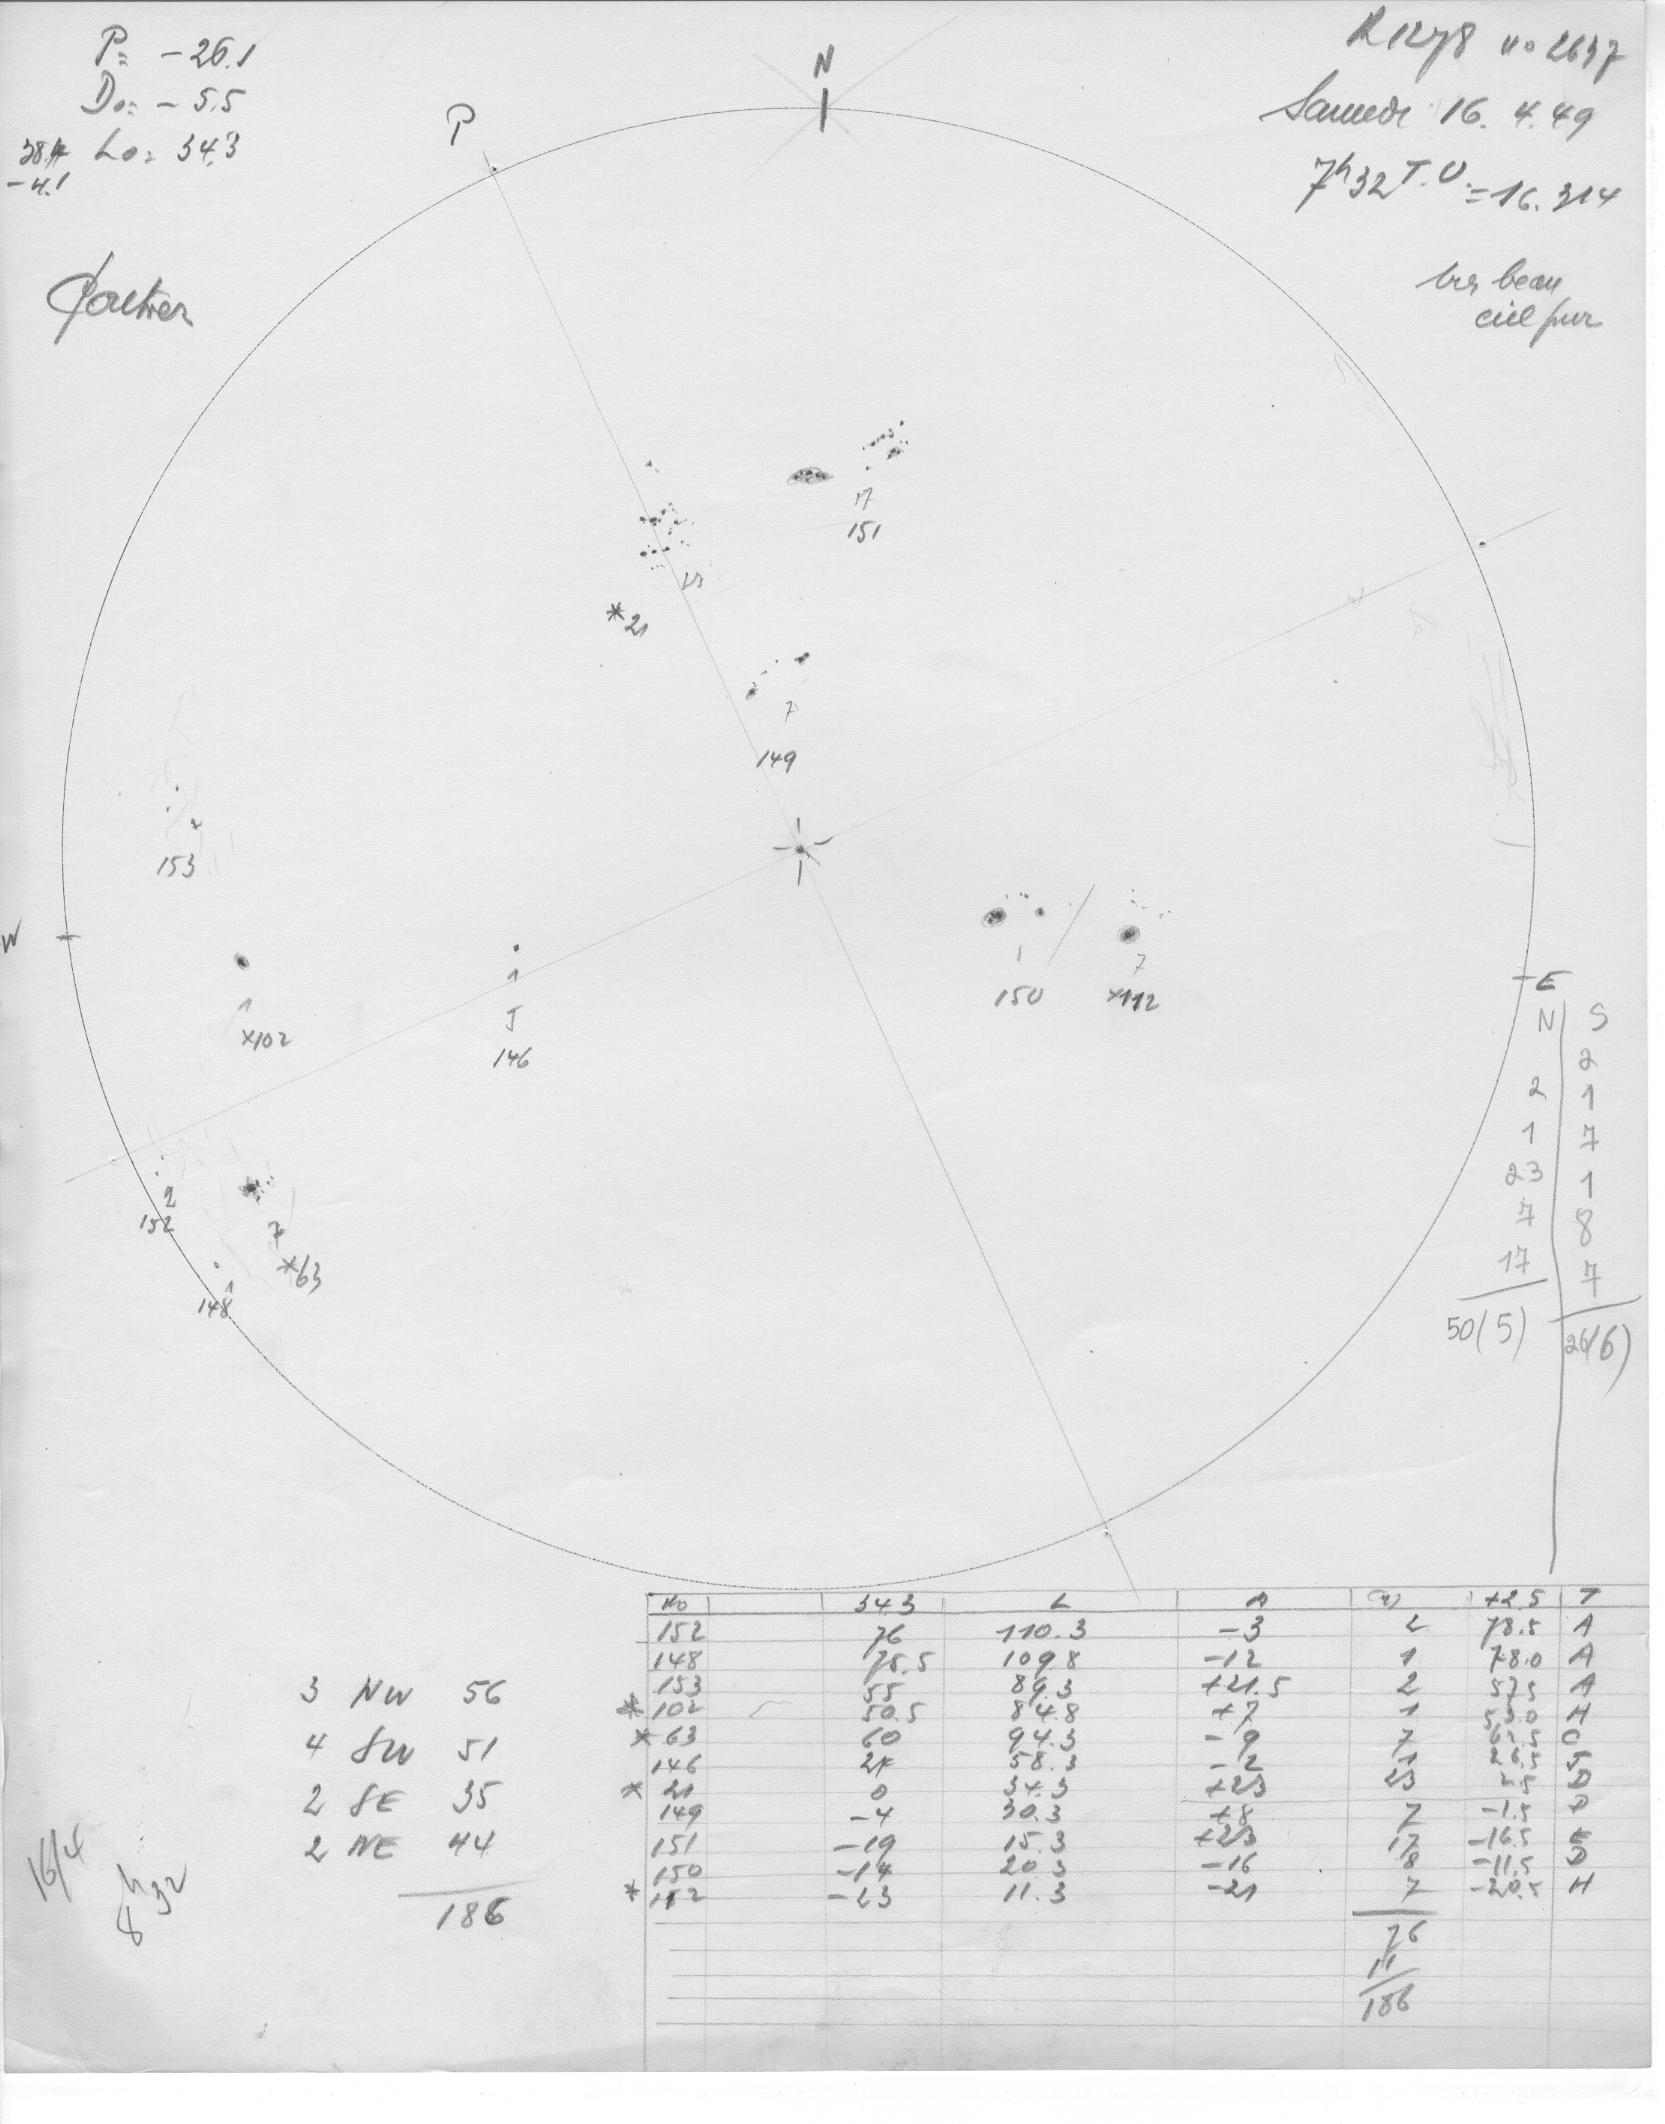 P= -26.1
Do= -5.5
Lo= 34.3
-4.1
R1278 no 2637
Samedi 16. 4. 49
7h32 T.U. =16.314
tres beau
ciel pur
N
P
17
151
23
*21
7
149
2
153
W
1
x102
1
J
146
1
150
7
x112
E
2
152
7
*63
1
148
N S
2
2 1
1 7
23 1
7 8
17 7
50(5) 26(6)
No 34.3 L A (n) +2.5 T
152 76 110.3 -3 2 78.5 A
148 75.5 109.8 -12 1 78.0 A
153 55 89.3 +21.5 2 57.5 A
*102 50.5 84.8 +7 1 53.0 H
*63 60 94.3 -9 7 62.5 C
146 24 58.3 -2 1 26.5 J
*21 0 34.3 +23 23 2.5 D
149 -4 30.3 +8 7 -1.5 D
151 -19 15.3 +23 17 -16.5 E
150 -14 20.3 -16 8 -11.5 D
*112 -23 11.3 -21 7 -20.5 H
76
11
186
3 NW 56
4 SW 51
2 SE 35
2 NE 44
186
16/4
8h32